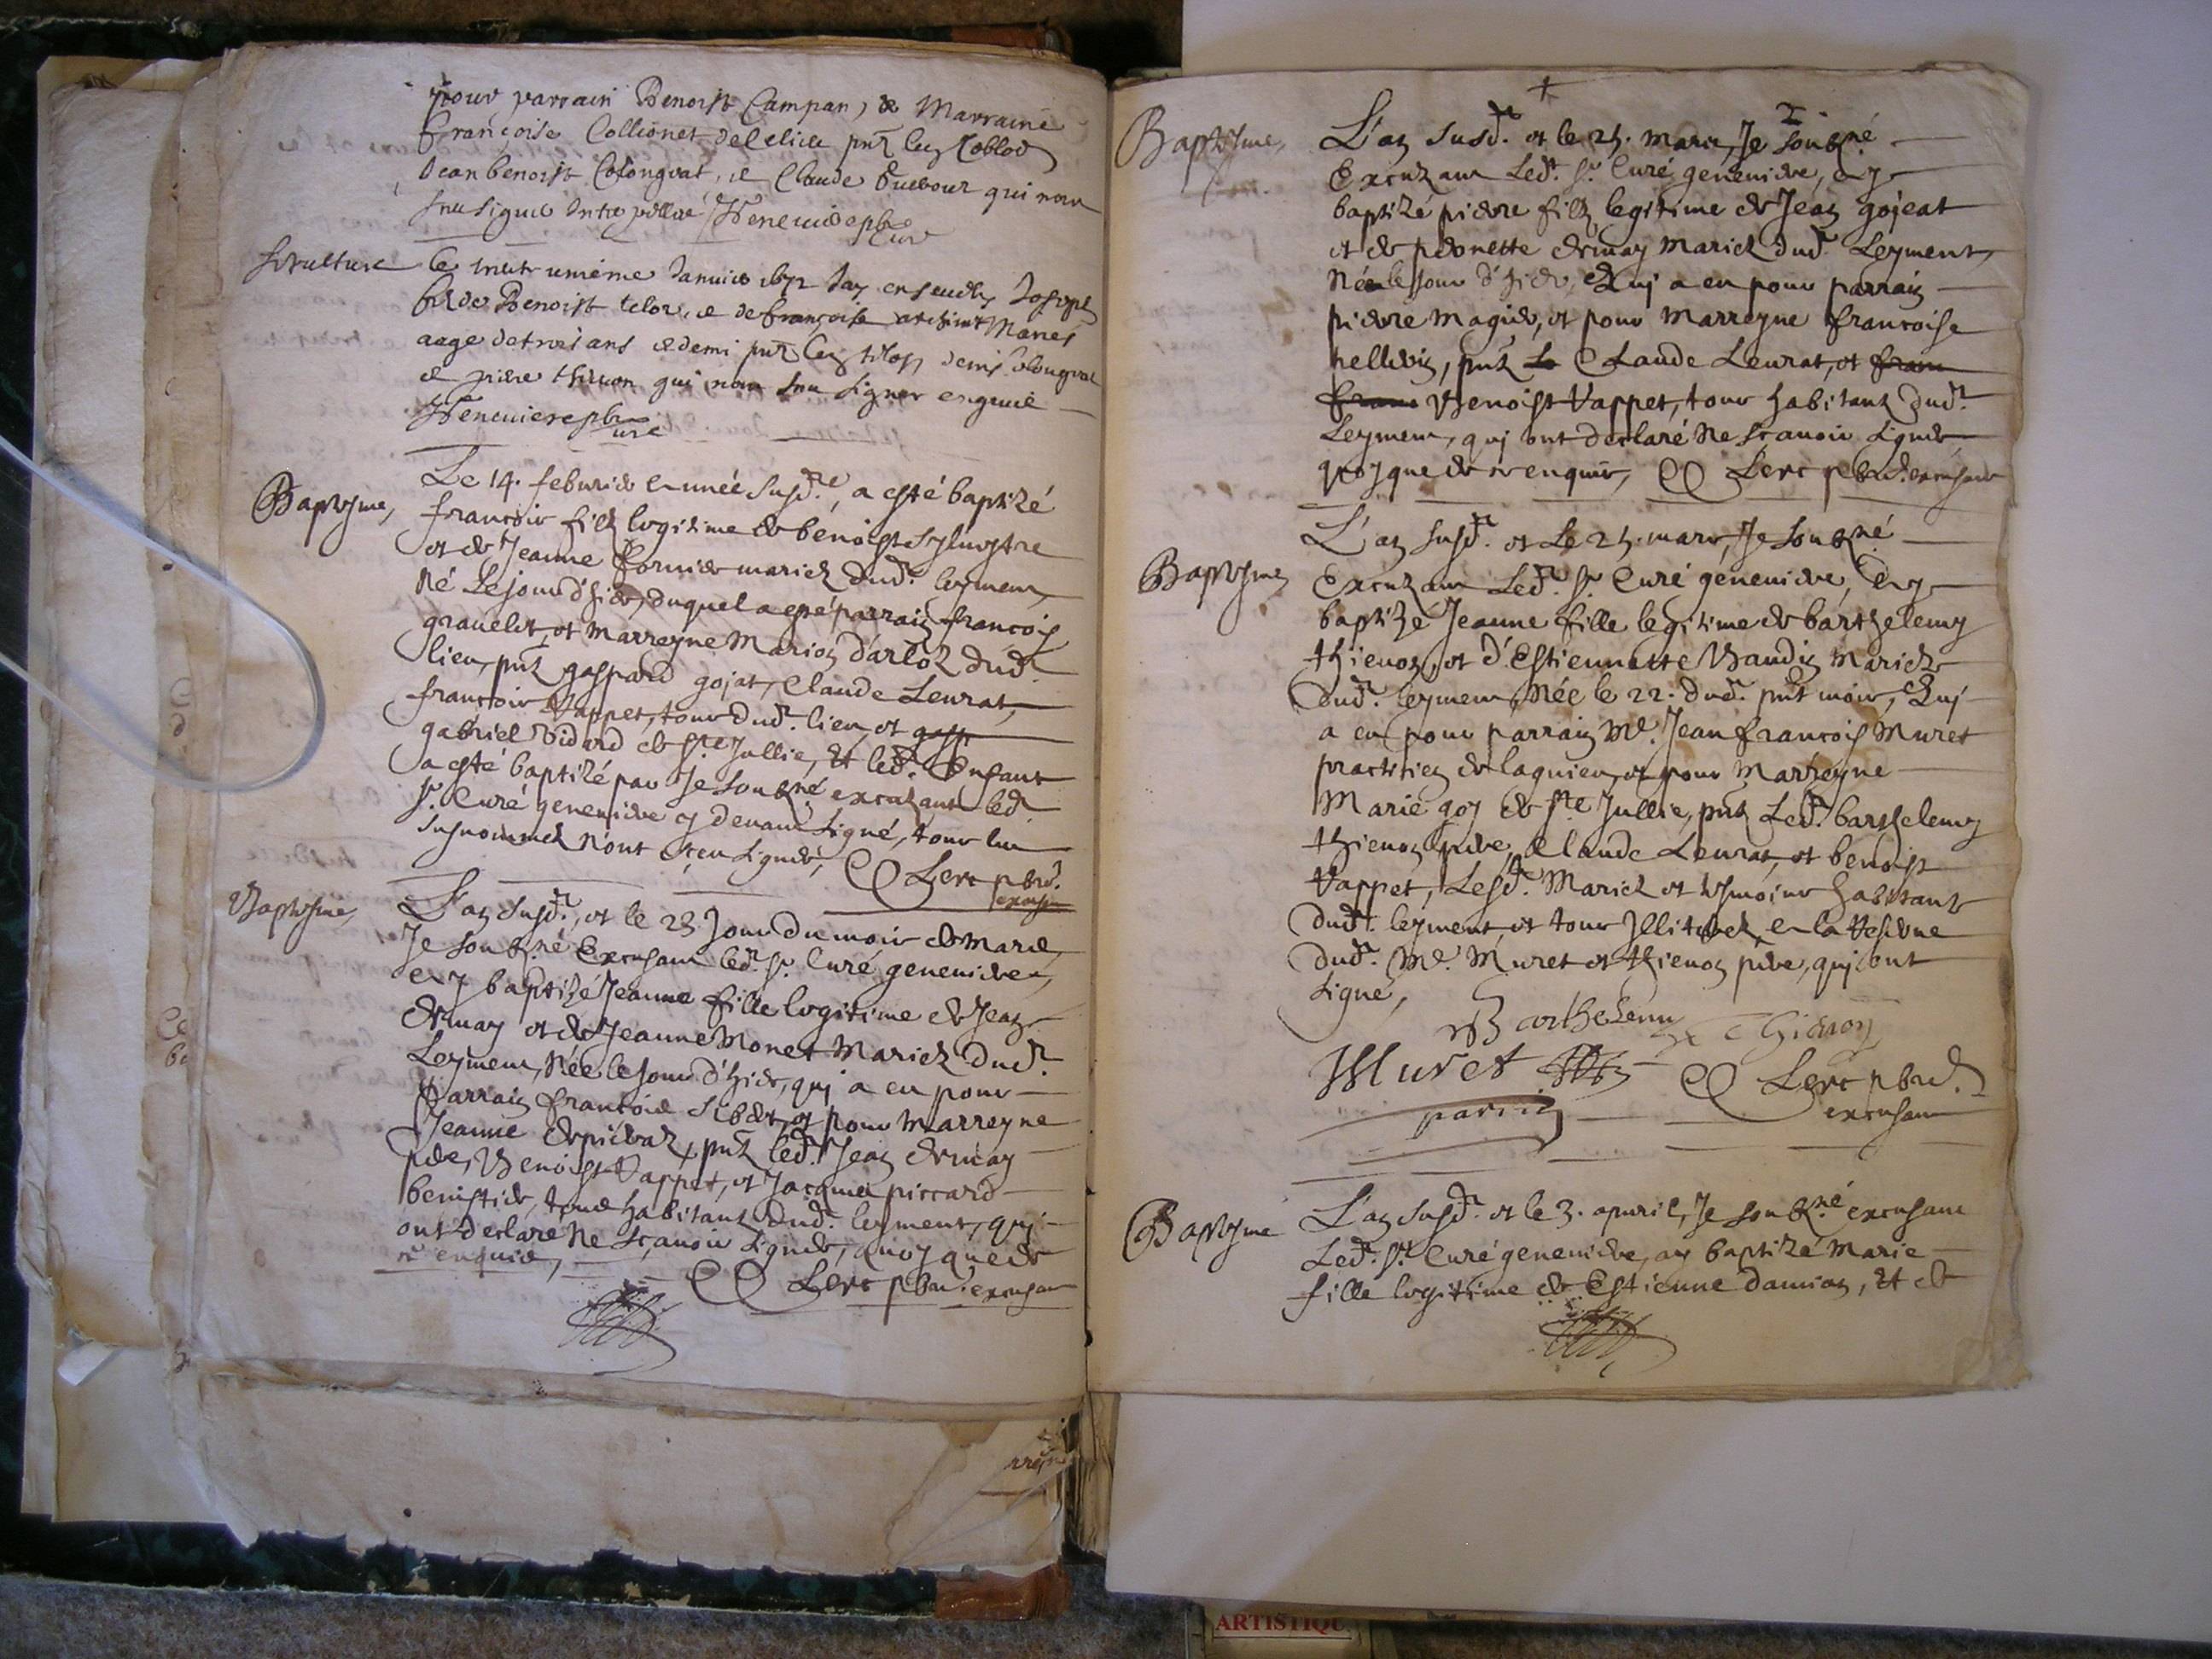 pour parrain Benoist Campan, & Marraine
françoise Collionet
Jean benoist Colongvat, & Claude qui nont
sceu signer
Sepulture
Le trente unieme Janvier 1672 Jay enseudly Joseph
fil de Benoist telor, & de françoise Maries
aage de trois ans & demi pnt Denis Colongvat
& piere thivon qui nont sceu signer enquis
Geneviere pbre
curé
Baptesme,
Le 14. febvrier année susd.e, a esté baptizé
francois filz legitime de benoist Sylvestre
et de Jeanne fornier mariez dud.t leyment
Né Lejour d'hier, duquel a esté parrain francois
gravelet, et Marreyne Marion d'arloz dud.t
lieu, pntz gaspard gojat, Claude Leurat,
francois Vappet, tous dud.t lieu, et gasp
gabriel Vidard de s.te Jullie, Et led.t Enfant
a esté baptizé par Je soubz.né excuzant led.t
s.r Curé geneviere cy devant signé, tous les
susnommez n'ont sceu signer, C Lerc pbre.
excusant
Baptesme,
L'an susd.t, et le 23. Jour du mois de Mars,
Je soubz.né Excusant led.t s.r Curé geneviere,
ay baptizé Jeanne fille legitime de Jean
dernay et de Jeanne Monet Mariez dud.t
Leyment, Née le jour d'hier, qui a eu pour
parrain francois Sibert, et pour Marreyne
Jeanne despierraz, pntz led.t Jean dernay
pere, Benoist Vappet, et Jacques piccard
benistier, tous habitantz dud.t leyment, qui
ont declaré Ne scavoir signer, quoy que de
ce enquis,
C Lerc pbre. excusant
Baptesme,
L'an susd.t et le 25. Mars, Je soubz.né
Excuzant Led.t s.r Curé genevieve, ay
baptizé pierre filz legitime de Jean gojeat
et de pernette dernay Mariez dud.t Leyment,
Né le jour d'hier, Qui a eu pour parrain
pierre Magier, et pour Marreyne francoise
pellevin, pntz Le Claude Leurat, et fran
fran Benoist Vappet, tous habitantz dud.t
Leyment, qui ont declaré Ne scavoir signer
quoyque de ce enquis, C Lerc pbre. excusant
Baptesme
L'an susd.t et Le 25. mars, Je soubz.né
Excuzant Led.t s.r Curé genevieve, ay
baptizé Jeanne fille legitime de barthelemy
thienon, et d'Estiennette Baudin Mariez
dud.t leyment, Née le 22. dud.t pnt mois, Qui
a eu pour parrain M.e Jean francois Muret
practicien de lagnieu, et pour Marreyne
Marie goy de s.te Jullie, pntz Led.t barthelemy
thienon pere, Claude Leurat, et benoist
Vappet, Lesd.t Mariez et tesmoins habitants
dud.t leyment, et tous Illiterez, a la reserve
dud.t M.e Muret et thienon pere, qui ont
signé,
Barthelemy Thienon
Muret
parrin
C Lerc pbre.
excusant
Baptesme
L'an susd.t et le 3. apvril, Je soubz.né excusant
Led.t s.r Curé genevieve, ay baptizé Marie
fille legitime de Estienne damian, Et de